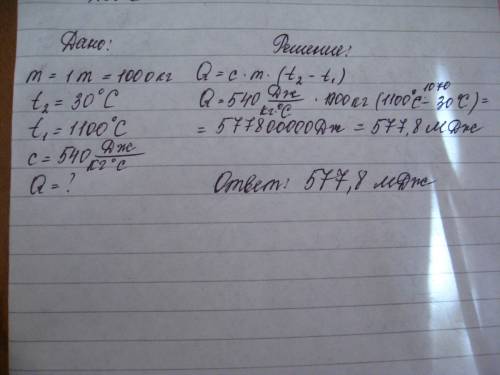 Дано:
m = 1т = 1000кг
t₂ = 30°С
t₁ = 1100°С
c = 540 Дж/кг°С
Q = ?
Решение:
Q = c · m · (t₂ - t₁)
1070
Q = 540 Дж/кг°С · 1000кг (1100°С - 30°С) =
= 577800000Дж = 577,8 МДж
Ответ: 577,8 МДж